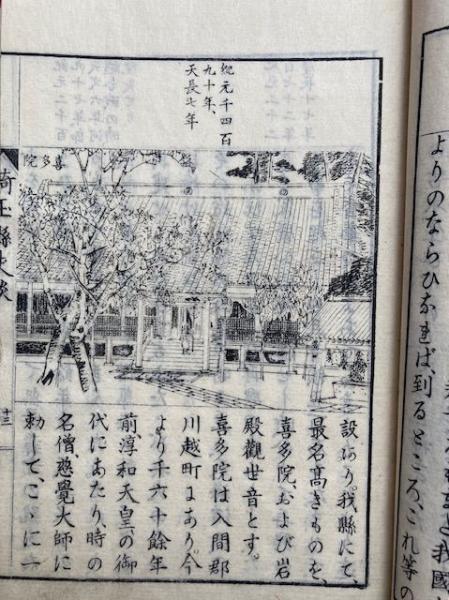 我國
よりのならひなれば、到るところ、これ等の
紀元千四百
九十年、
天長七年
喜多院
設あり。我縣にて、
最名高きものを、
喜多院、および岩
殿觀世音とす。
喜多院は入間郡
川越町にあり。今
より千六十餘年
前淳和天皇の御
代にあたり、時の
名僧、慈覺大師に
勅して、こゝに一
埼玉縣史談
十三